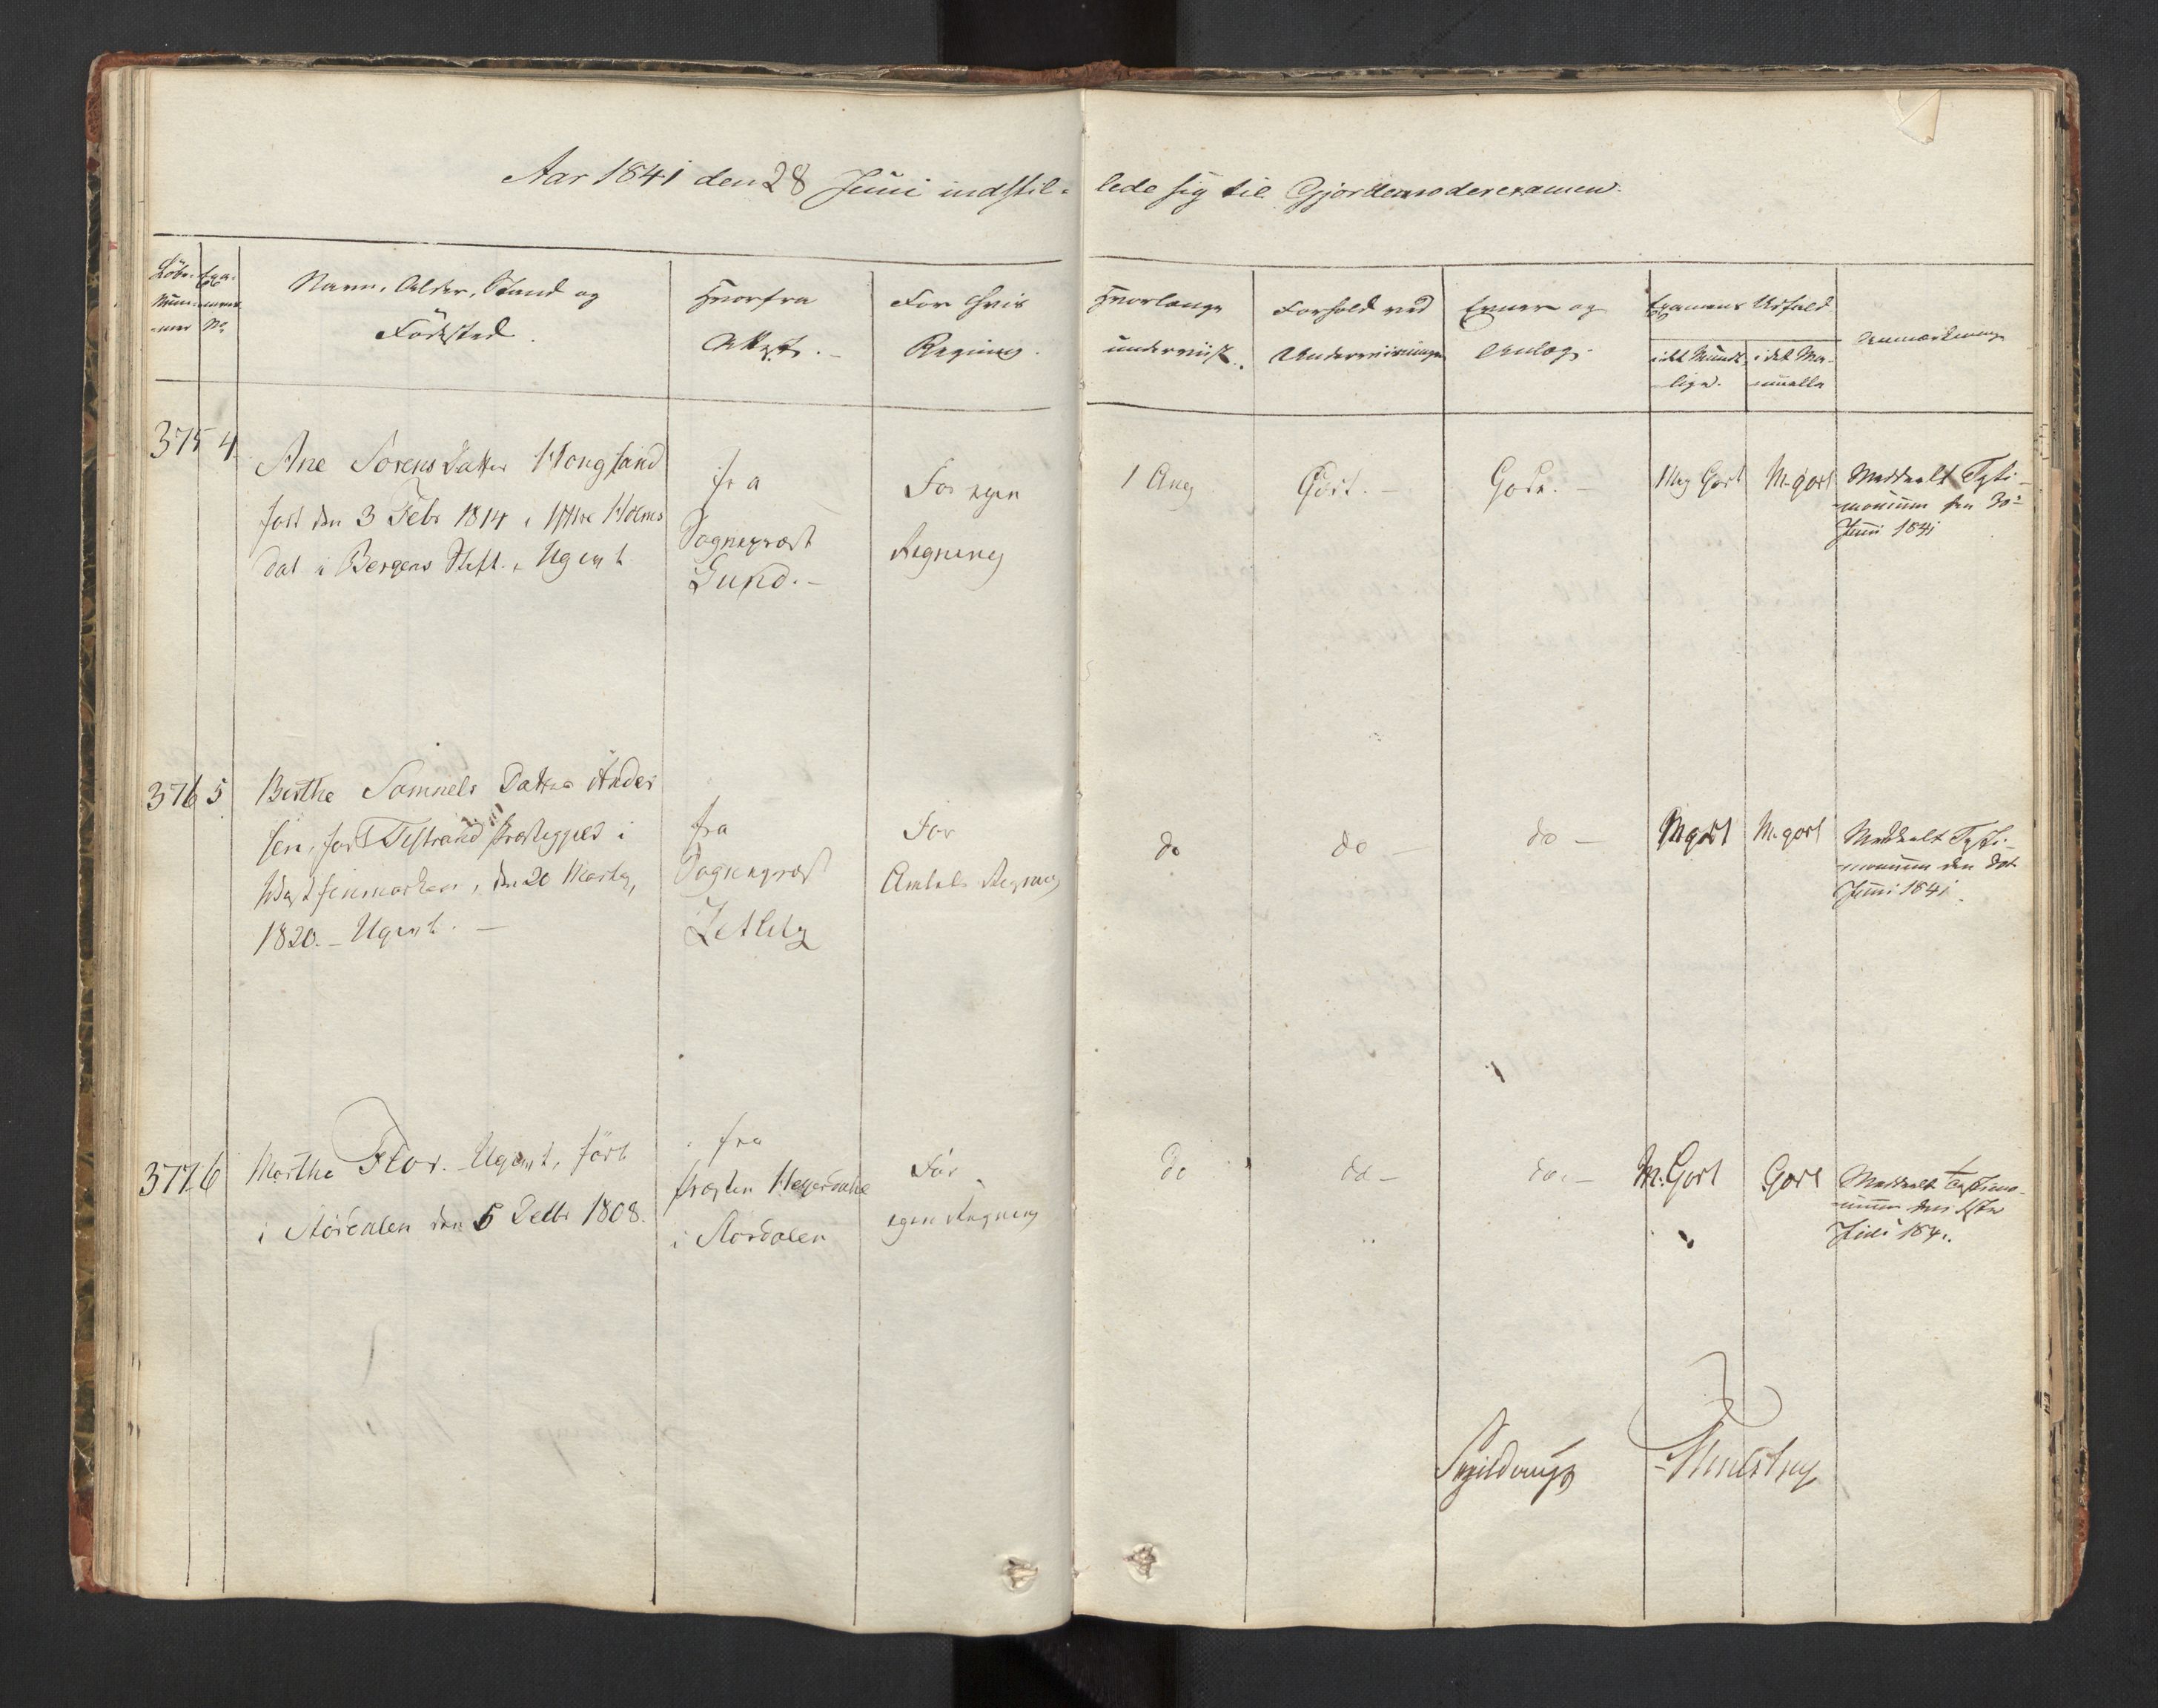 Aar 1841 den 28 Juni indstil-
lede sig til Gjordemoderexamen.
Löbe-
Num-
mer
Exa-
mens
No
Navn, Alder, Stand og
Födested.
Hvorfra
Attest.
For Hvis
Regning.
Hvorlænge
underviist.
Forhold ved
Underviisningen
Evner og
Anlæg.
Examens Udfald
i det Mundt-
lige.
i det Ma-
nuelle
Anmærkninger
375 4.
Ane Sorens Datter Hougland
fød den 3 Febr 1814 i Yttre Holme
dal i Bergens Stift. Ugivt
fra
Sogneprest
Gund.-
For egen
Regning
1 Aar
Godt. -
Gode. -
Meg Godt
M-godt
Meddeelt Testi-
monium den 30-
Juni 1841
376 5
Berthe Samuels Datter Ander
sen, fød i Testrand Præstegjeld i
Westfinmarken, den 20 Marts,
1820. - Ugivt. -
fra
Sogneprest
Zetlitz
For
Amtets Regning
do
do -
do -
M godt
M. godt
Meddeelt Testi-
monium den
Juni 1841.
377. 6
Marthe Flor. Ugivt, född
i Stördalen den 5 Decbr 1808.
fra
Præsten Heyerdahl
i Stördalen
For
egen Regning
do
do -
do. -
M. Godt
Godt
Meddeelt Testimo-
nium den 1ste
Juli 1841.